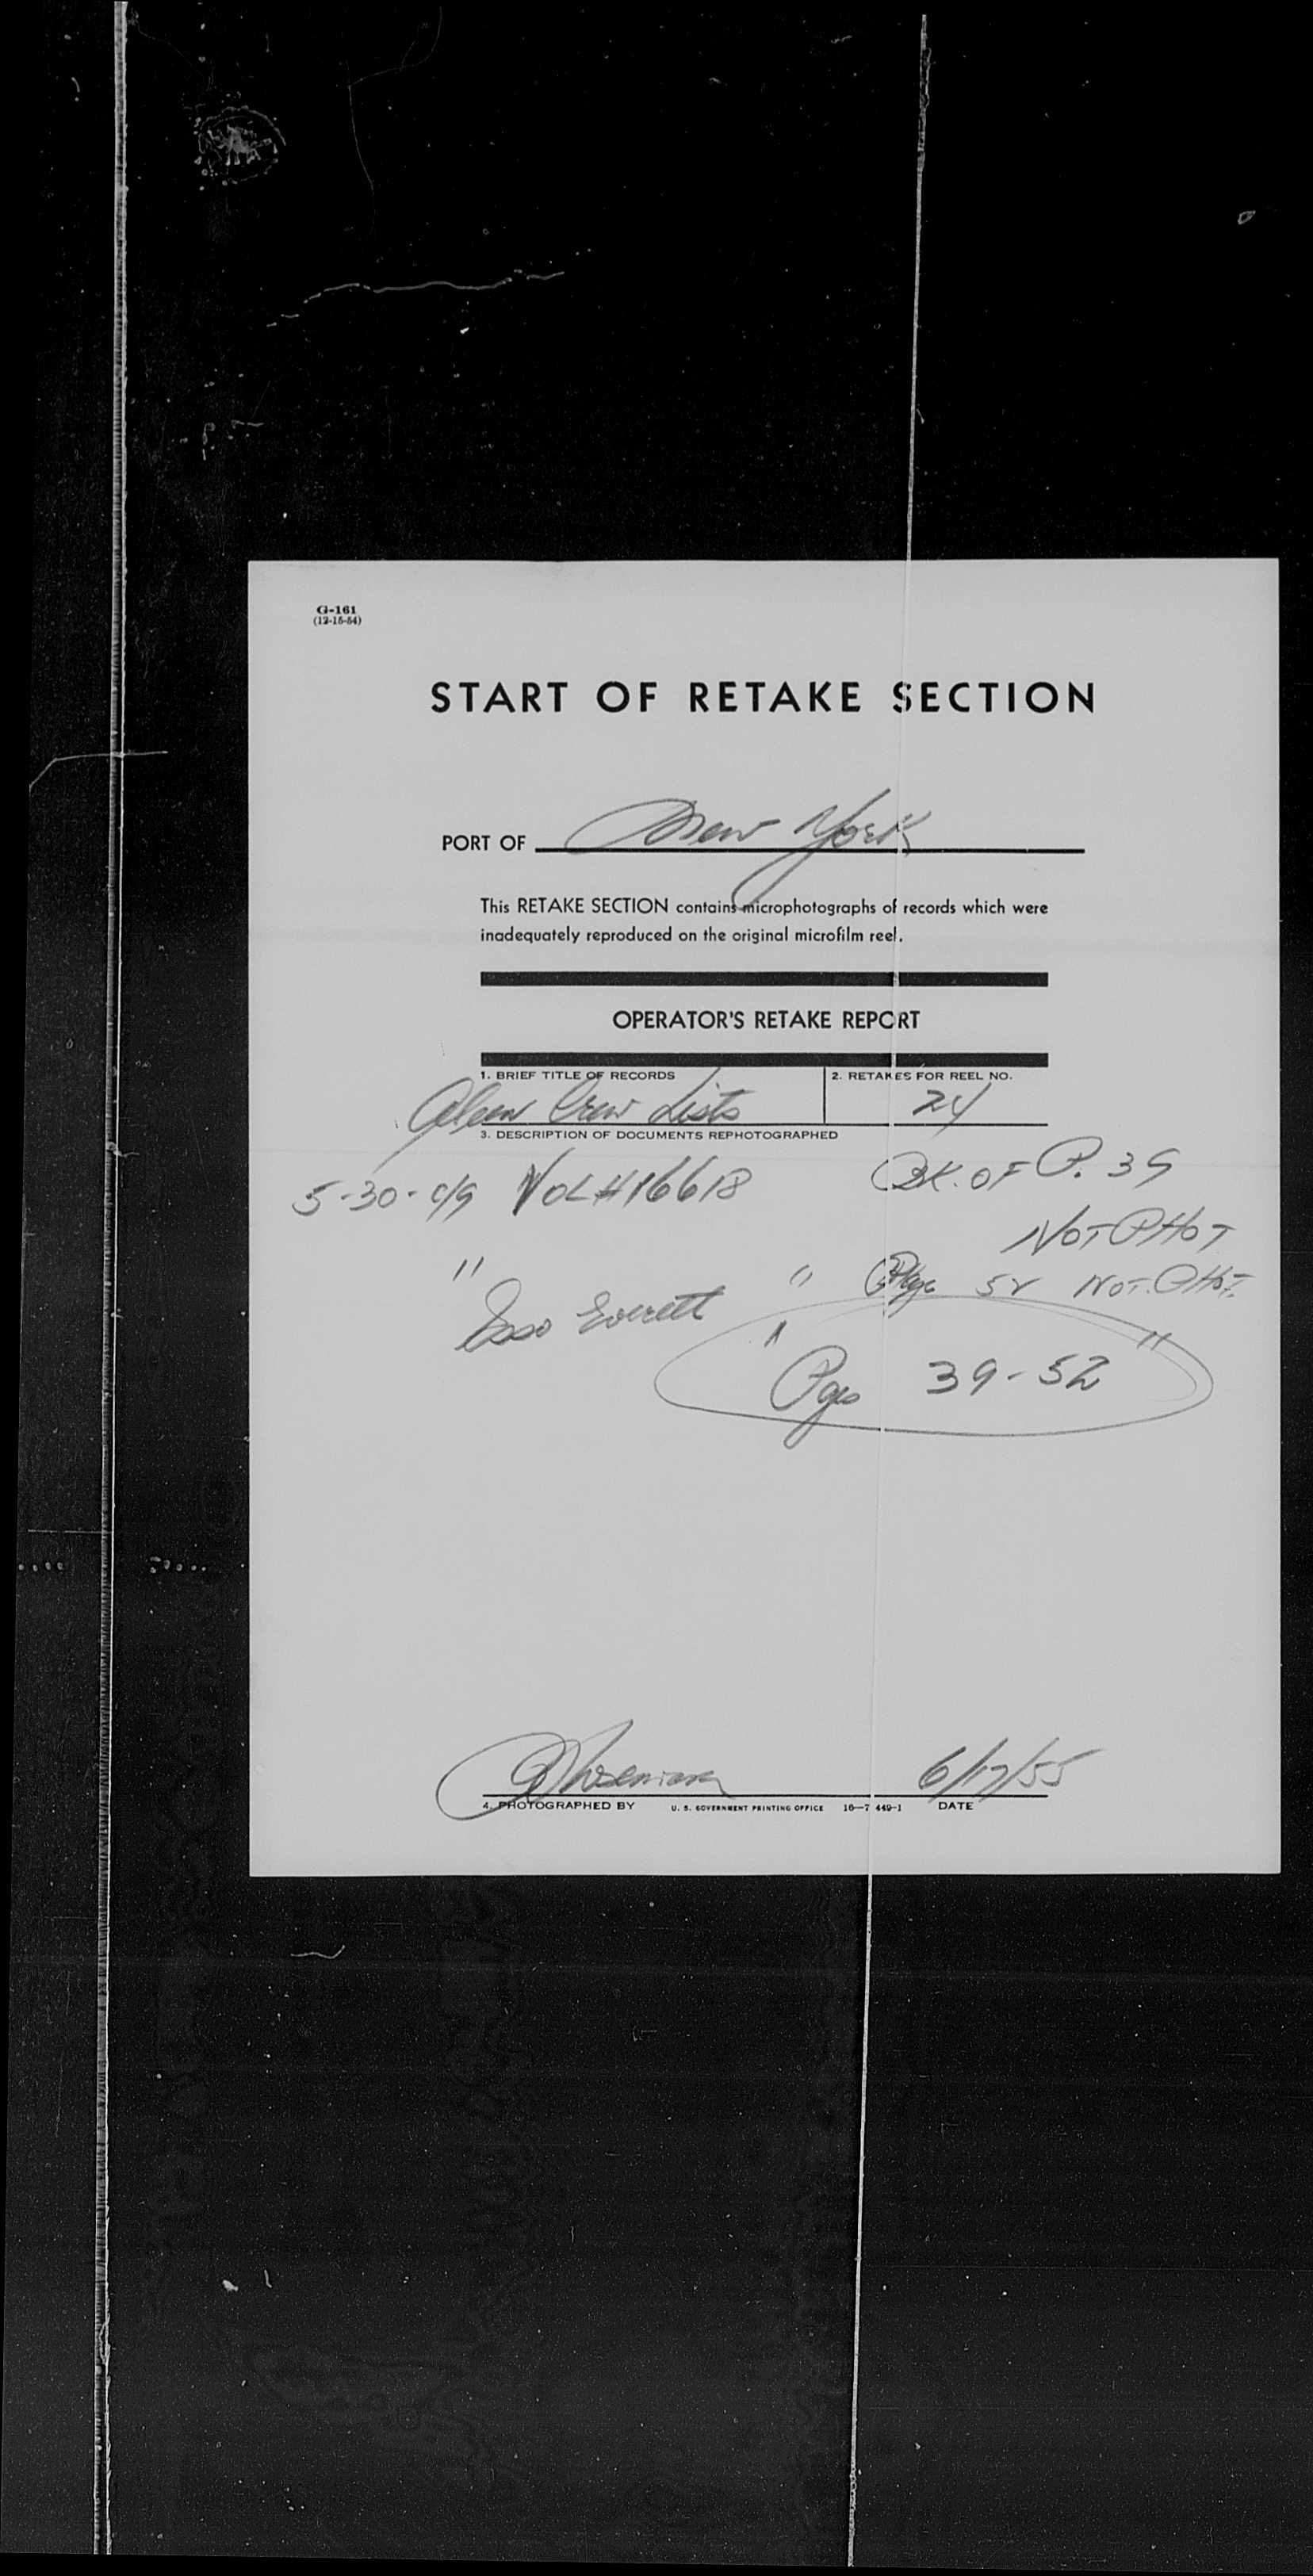 G-161
(12-15-54)
START OF RETAKE SECTION
PORT OF New York
This RETAKE SECTION contains microphotographs of records which were
inadequately reproduced on the original microfilm reel.
OPERATOR'S RETAKE REPORT
1. BRIEF TITLE OF RECORDS 2. RETAKES FOR REEL NO.
Alien Crew Lists 24
3. DESCRIPTION OF DOCUMENTS REPHOTOGRAPHED
5-30-49 VOL #16618 BK. OF P. 39
NOT PHOT
" " Page 52 NOT. PHOT.
Esso Everett
" Pgs 39-52 "
6/17/55
4. PHOTOGRAPHED BY U. S. GOVERNMENT PRINTING OFFICE 16—7 449-1 DATE